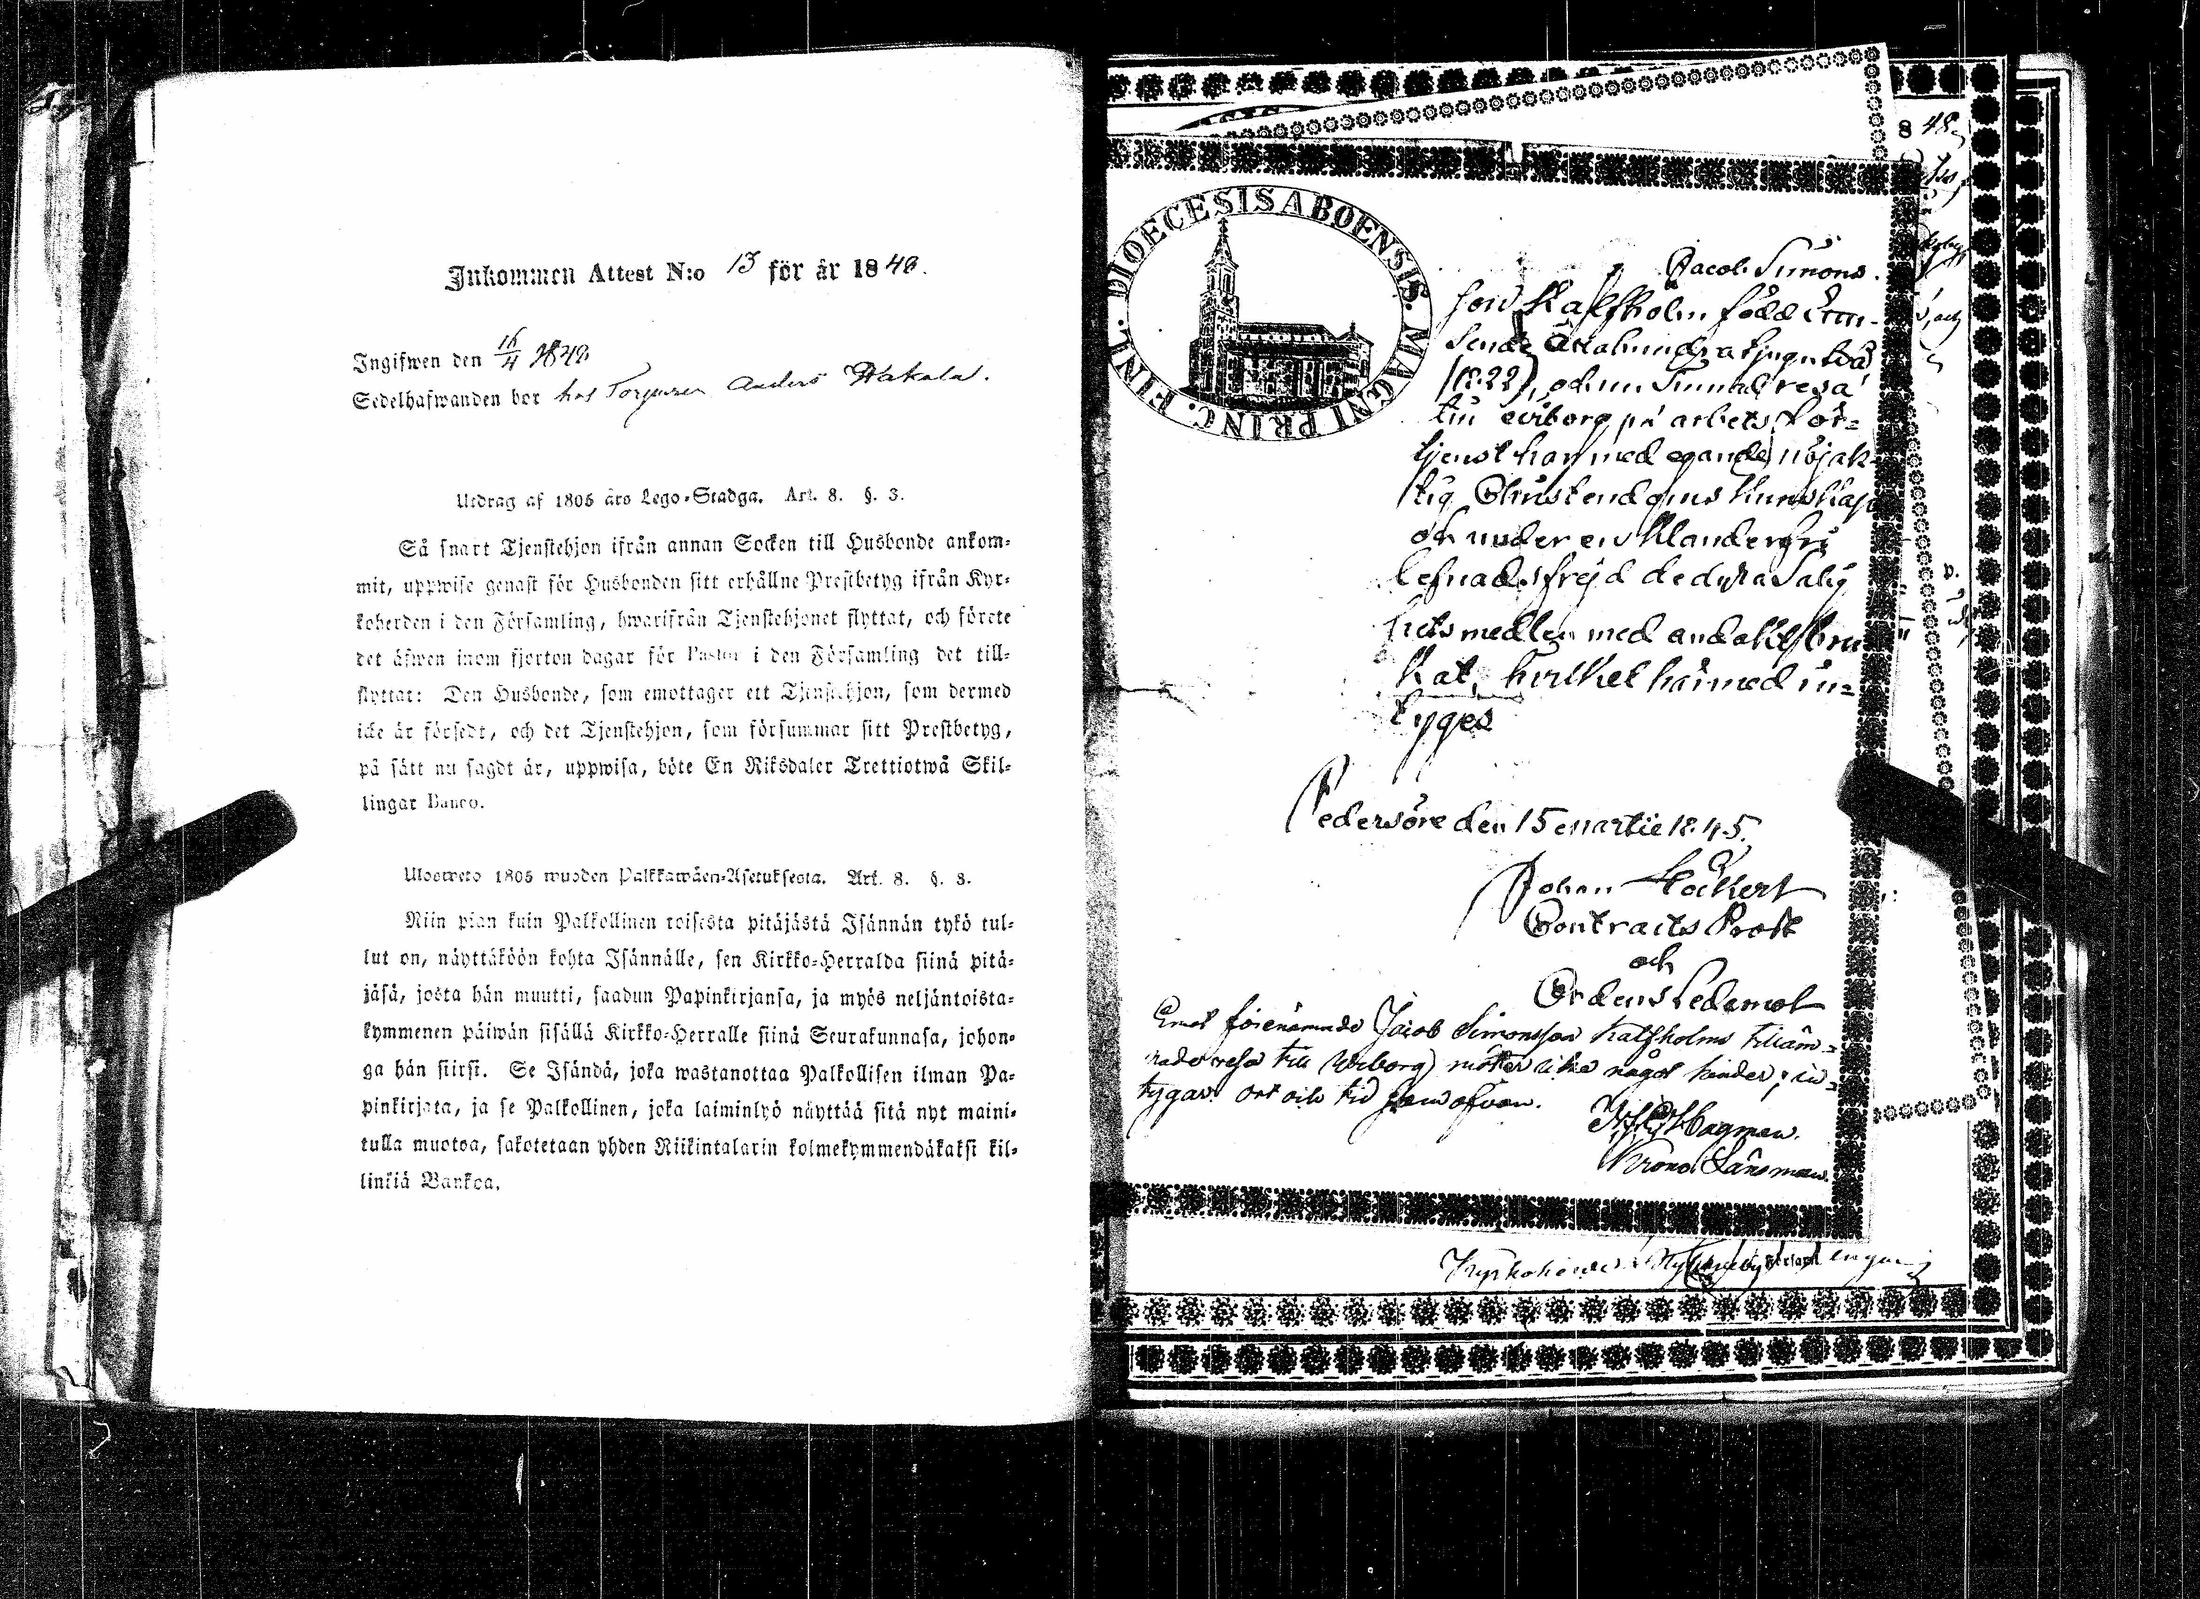 Inkommen Attest N:o 13 för år 1848.
Ingifwen den 16/4 1848
Sedelhafwanden bor hos Torparen Anders Hakala.
Utdrag af 1805 års Lego-Stadga. Art. 8. §. 3.
Så snart Tjenstehjon ifrån annan Socken till Husbonde ankom-
mit, uppwise genast för Husbonden sitt erhållne Prestbetyg ifrån Kyr-
koherden i den Församling, hwarifrån Tjenstehjonet flyttat, och förete
det äfwen inom fjorton dagar för Pastor i den Församling det till-
flyttat: Den Husbonde, som emottager ett Tjenstehjon, som dermed
icke är försedt, och det Tjenstehjon, som försummar sitt Prestbetyg,
på sätt nu sagdt är, uppwisa, böte En Riksdaler Trettiotwå Skil-
lingar Banco.
Ulosweto 1805 wuoden Palkkawäen-Asetuksesta. Art. 8. §. 3.
Niin pian kuin Palkollinen toisesta pitäjästä Isännän tykö tul-
lut on, näyttäköön kohta Isännälle, sen Kirkko-Herralda siinä pitä-
jäsä, josta hän muutti, saadun Papinkirjansa, ja myös neljäntoista-
kymmenen päiwän sisällä Kirkko-Herralle siinä Seurakunnasa, johon-
ga hän siirsi. Se Isändä, joka wastanottaa Palkollisen ilman Pa-
pinkirjata, ja se Palkollinen, joka laiminlyö näyttää sitä nyt maini-
tulla muotoa, sakotetaan yhden Riikintalarin kolmekymmendäkaksi kil-
linkiä Bankoa.
DIOECESIS ABOENSIS. MAGNI PRINC. FINL.
8 48
Jacob Simons
son Kalfholm född Ett-
tusende Åttahundratjugutvå
(1822), och nu sinnad resa
till Wiborg på arbets för-
tjenst har med egande nöjak-
tig Christendoms kunskap
och under en klanderfri
lefnadsfrejd de dyra Salig
hets medlen med andakt bru
kat, hvilket härmed in-
tyges
Pedersöre den 15 Martii 1845.
Johan Höckert
Contracts Prost
och
Ordens Ledamot
Emot förenämnde Jacob Simonsson Kalfholms tilläm-
nade resa till Wiborg möter icke något hinder; in-
tygar. Ort och tid som ofvan.
Hagman.
Krono Länsman.